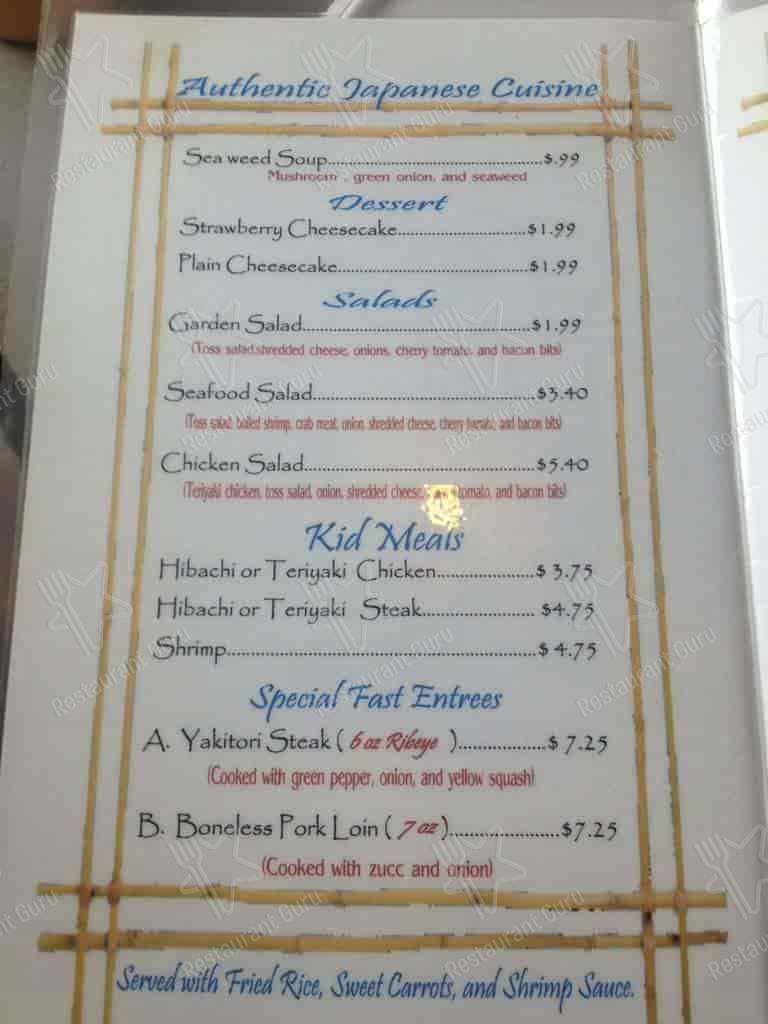 Authentic Japanese Cuisine
Sea weed Soup..........................................$.99
Mushroom , green onion, and seaweed
Dessert
Strawberry Cheesecake..........................$1.99
Plain Cheesecake......................................$1.99
Salads
Garden Salad.............................................$1.99
(Toss salad,shredded cheese, onions, cherry tomato, and bacon bits)
Seafood Salad...........................................$3.40
(Toss salad, boiled shrimp, crab meat, onion, shredded cheese, cherry tomato, and bacon bits)
Chicken Salad............................................$5.40
(Teriyaki chicken, toss salad, onion, shredded cheese, tomato, and bacon bits)
Kid Meals
Hibachi or Teriyaki Chicken......................$ 3.75
Hibachi or Teriyaki Steak......................... $4.75
Shrimp............................................................$ 4.75
Special Fast Entrees
A. Yakitori Steak ( 6 oz Ribeye )..................$ 7.25
(Cooked with green pepper, onion, and yellow squash)
B. Boneless Pork Loin ( 7 oz )......................$7.25
(Cooked with zucc and onion)
Served with Fried Rice, Sweet Carrots, and Shrimp Sauce.
Restaurant Guru